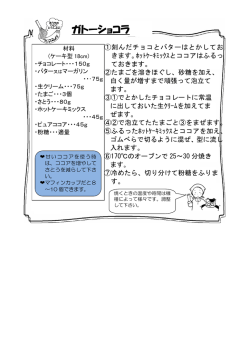 ガトーショコラ
材料
（ケーキ型 18cm）
・チョコレート・・・１５０ｇ
・バターｏｒマーガリン
・・・７５ｇ
・生クリーム・・・７５ｇ
・たまご・・・３個
・さとう・・・８０ｇ
・ホットケーキミックス
・・・４５ｇ
・ピュアココア・・・４５ｇ
・粉糖・・・適量
❤甘いココアを使う時
は、ココアを増やして
さとうを減らして下さ
い。
❤マフィンカップだと８
～１０個できます。
①刻んだチョコとバターはとかしてお
きます。ﾎｯﾄｹｰｷﾐｯｸｽとココアはふるっ
ておきます。
②たまごを溶きほぐし、砂糖を加え、
白く量が増すまで頑張って泡立て
ます。
③①でとかしたチョコレートに常温
に出しておいた生ｸﾘｰﾑを加えてま
ぜます。
④②で泡立てたたまごと③をまぜます。
⑤ふるったﾎｯﾄｹｰｷﾐｯｸｽとココアを加え、
ゴムべらで切るように混ぜ、型に流し
入れます。
⑥170℃のオーブンで 25～30 分焼き
ます。
⑦冷めたら、切り分けて粉糖をふりま
す。
焼くときの温度や時間は機
種によって様々です。調整
して下さい。